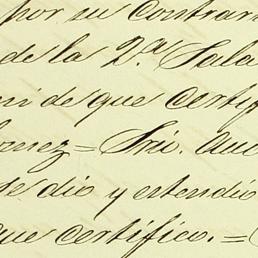 por su contrari
de la 2.ª Sala
mí de que certifi
omez = Srio. Auc
te dio y estendio
que certifico. =